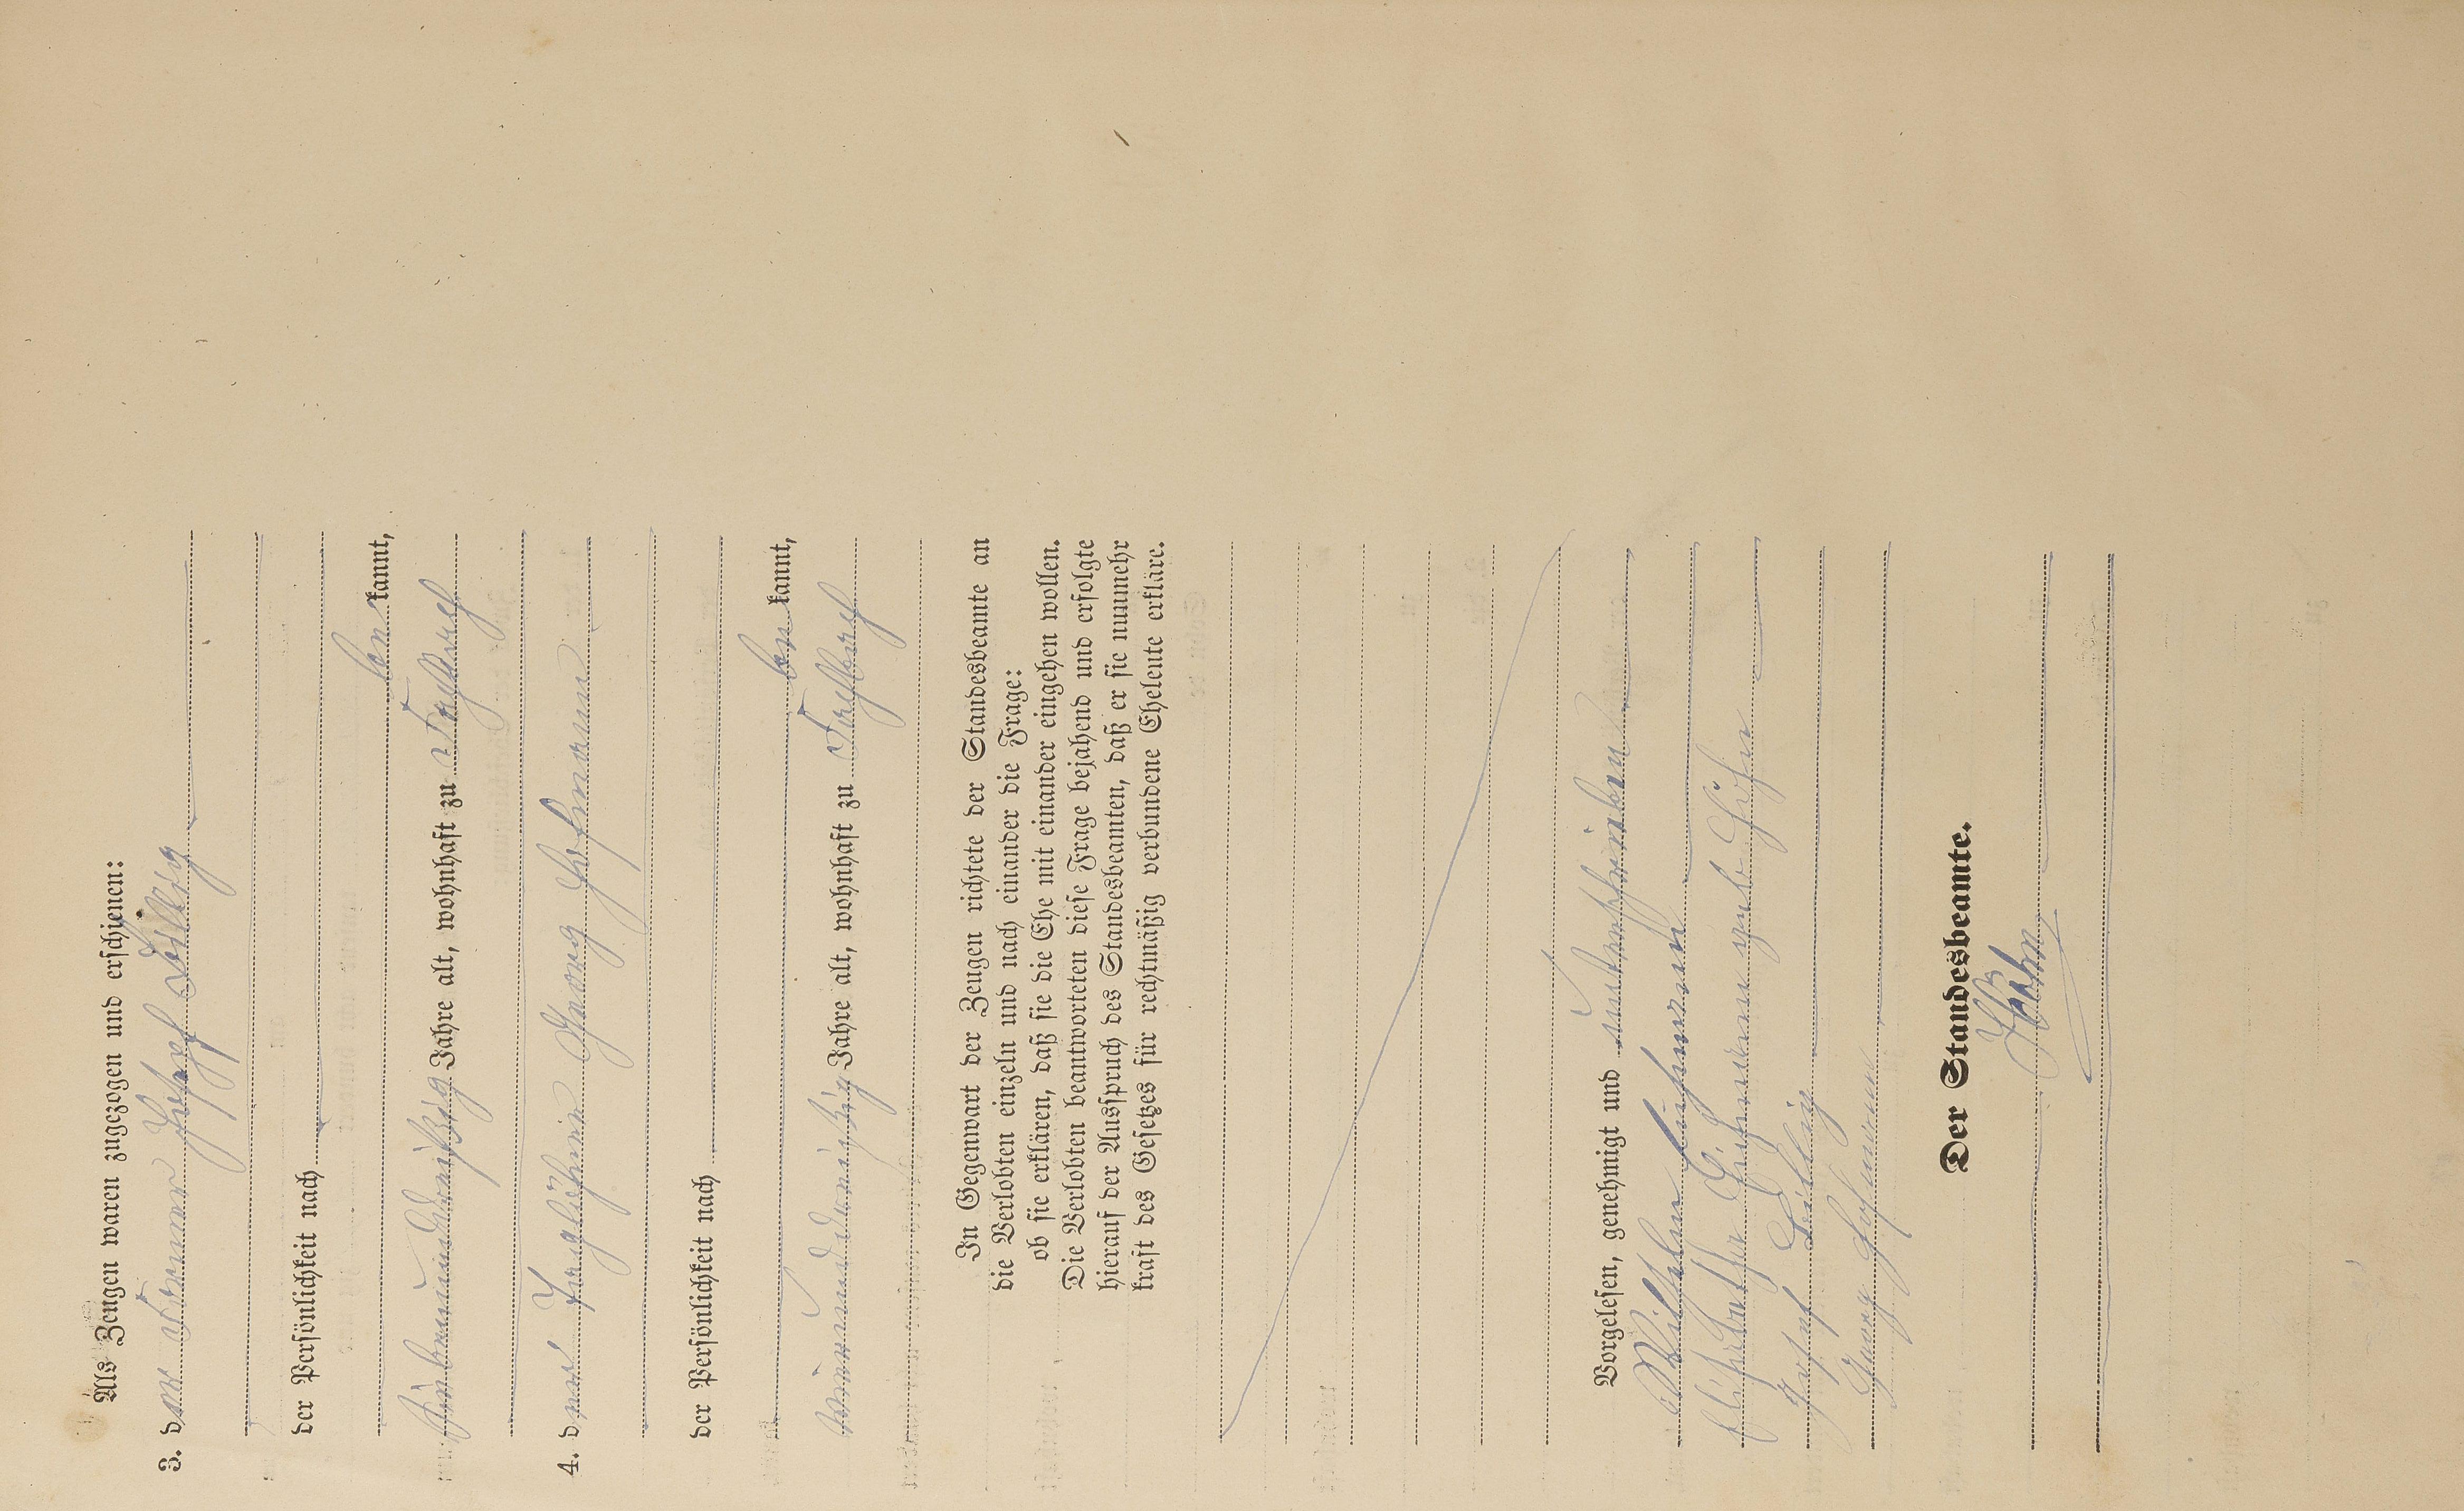 Als Zeugen waren zugezogen und erschienen:
3. der Former Josef Dillig
der Persönlichkeit nach
be kannt,
siebenunddreißig Jahre alt, wohnhaft zu
4. der Taglöhner Georg Hofmann
der Persönlichkeit nach
be kannt,
Jahre alt, wohnhaft zu
In Gegenwart der Zeugen richtete der Standesbeamte an
die Verlobten einzeln und nach einander die Frage:
ob sie erklären, daß sie die Ehe mit einander eingehen wollen.
Die Verlobten beantworteten diese Frage bejahend und erfolgte
hierauf der Ausspruch des Standesbeamten, daß er sie nunmehr
kraft des Gesetzes für rechtmäßig verbundene Eheleute erkläre.
Vorgelesen, genehmigt und unterschrieben
Wilhelm
Elisabetha geb. Höhn
Josef Dillig
Georg Hofmann
Der Standesbeamte.